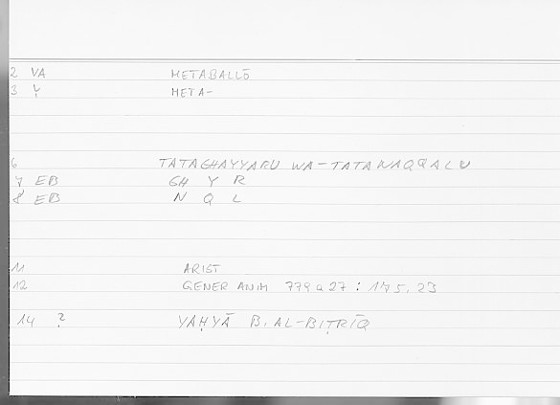 2 VA METABALLŌ
3 Ṿ META-
6 TATAGHAYYARU WA-TATANAQQALU
7 EB GH Y R
8 EB N Q L
11 ARIST
12 GENER ANIM 779 a 27 : 175, 23
14 ? YAḤYĀ B. AL-BIṬRĪQ